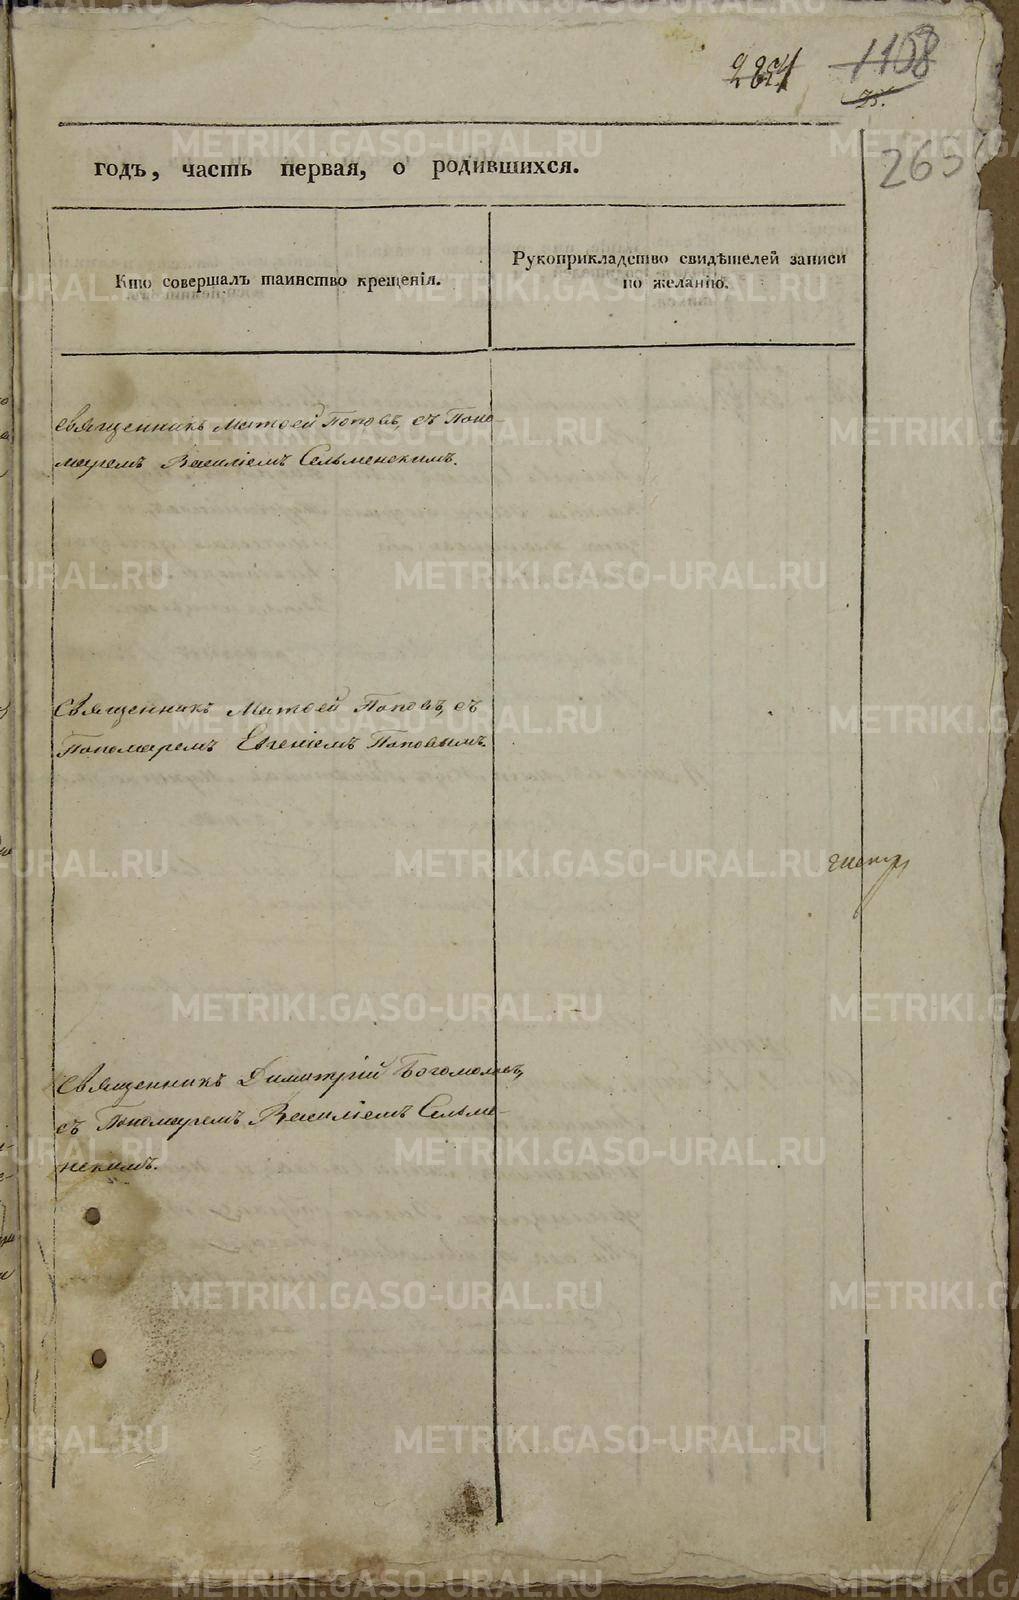 1108
265
годъ, часть первая, о родившихся.
Кто совершалъ таинство крещенія.
Рукоприкладство свидѣтелей записи
по желанію.
Священникъ Матѳей Поповъ, съ Поно-
маремъ Василіемъ Сельменскимъ.
Священникъ Матѳей Поповъ, съ
Пономаремъ Евгеніемъ Поповымъ.
Священникъ Димитрій Богомоловъ,
съ Пономаремъ Василіемъ Сельме-
нскимъ.
METRIKI.GASO-URAL.RU